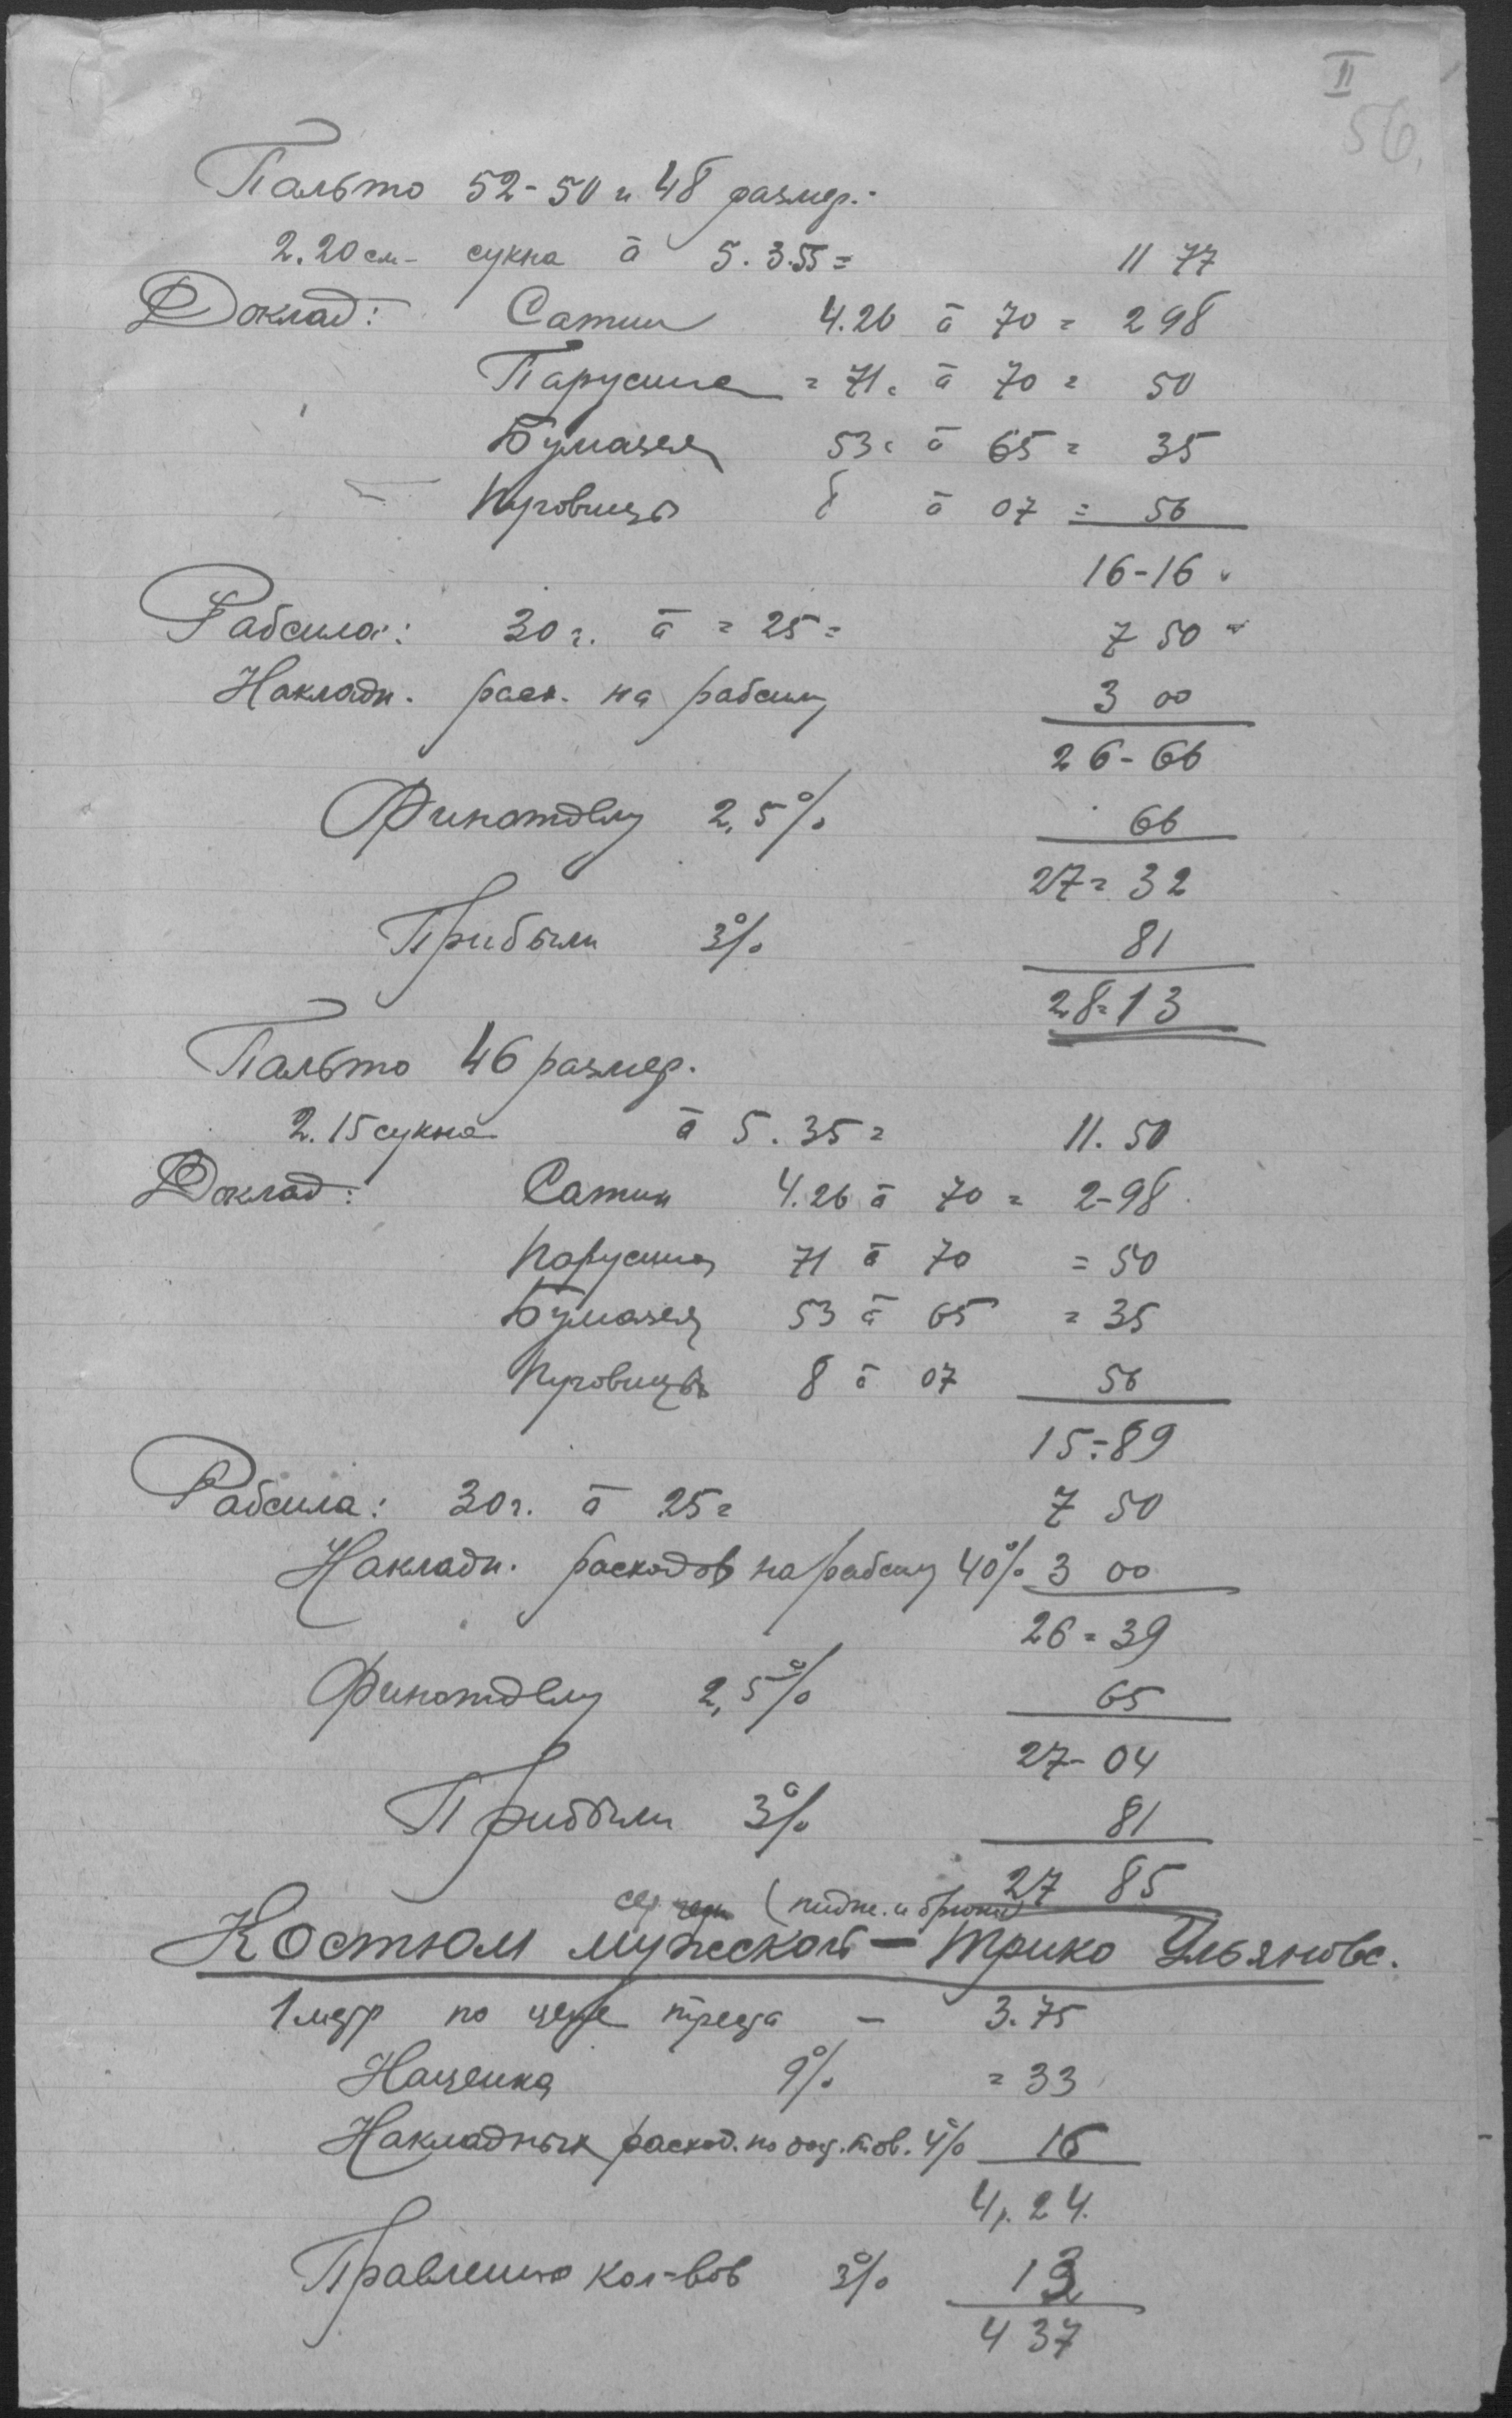 II
56.
Пальто 52-50 и 48 размер.-
2.20 см- сукна à 5.3.55 = 11 77
Доклад: Сатин 4.26 à 70 = 298
Парусина = 71. à 70 = 50
Бумазея 53. à 65 = 35
Пуговицы 8 à 07 = 56
16-16
Рабсила: 30 г. à = 25 = 7 50
Накладн. расх. на рабсилу 3 00
26-66
Финотделу 2,5% 66
27=32
Прибыли 3% 81
28=13
Пальто 46 размер.
2.15 сукна à 5.35 = 11.50
Доклад: Сатин 4.26 à 70 = 2-98
Парусина 71 à 70 = 50
Бумазея 53 à 65 = 35
Пуговицы 8 à 07 56
15=89
Рабсила: 30 г. à 25 = 7 50
Накладн. расходов на рабсилу 40% 3 00
26=39
Финотделу 2,5% 65
27-04
Прибыли 3% 81
27 85
(пидж. и брюки)
Костюм мужской — Трико Ульяновс.
1 метр по цене треста - 3.75
Наценка 9% = 33
Накладных расход. по тов. 4% 16
4.24.
Правлению кол-вов 3% 13
4 37